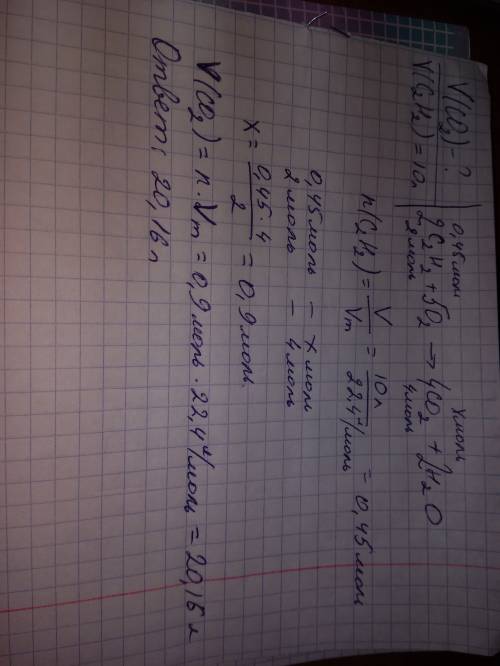 V(CO₂) - ?
V(C₂H₂) = 10л
0,45моль x моль
2C₂H₂ + 5O₂ → 4CO₂ + 2H₂O
2моль 4моль
n(C₂H₂) = V/Vm = 10л/22,4л/моль = 0,45моль
0,45моль – x моль
2моль – 4моль
x = 0,45·4/2 = 0,9моль
V(CO₂) = n·Vm = 0,9моль·22,4л/моль = 20,16л
Ответ: 20,16л